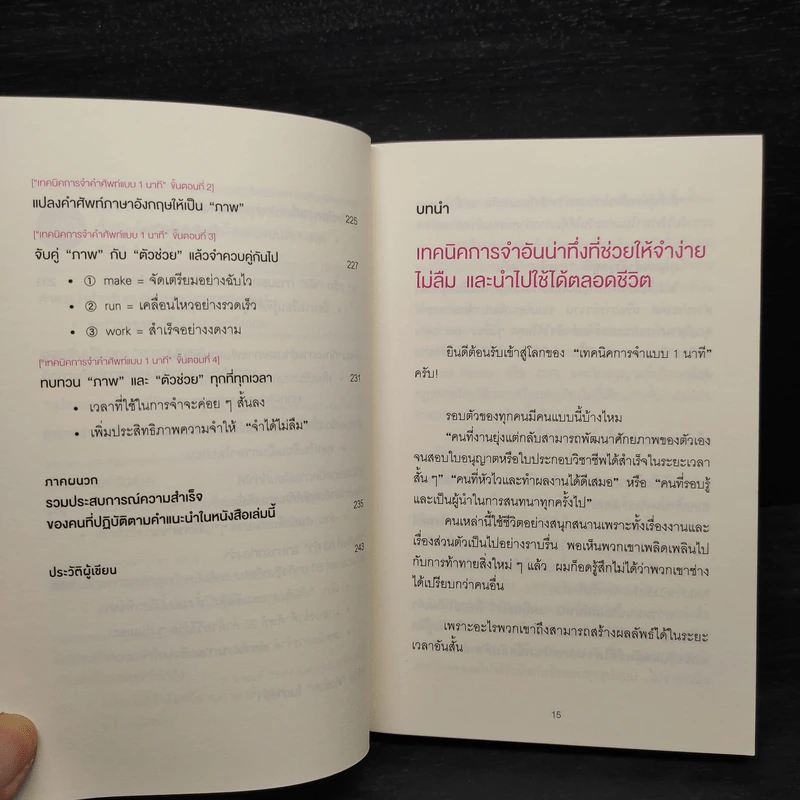 ["เทคนิคการจำคำศัพท์แบบ 1 นาที" ขั้นตอนที่ 2]
แปลงคำศัพท์ภาษาอังกฤษให้เป็น "ภาพ" 225
["เทคนิคการจำคำศัพท์แบบ 1 นาที" ขั้นตอนที่ 3]
จับคู่ "ภาพ" กับ "ตัวช่วย" แล้วจำควบคู่กันไป 227
• ① make = จัดเตรียมอย่างฉับไว
• ② run = เคลื่อนไหวอย่างรวดเร็ว
• ③ work = สำเร็จอย่างงดงาม
["เทคนิคการจำคำศัพท์แบบ 1 นาที" ขั้นตอนที่ 4]
ทบทวน "ภาพ" และ "ตัวช่วย" ทุกที่ทุกเวลา 231
• เวลาที่ใช้ในการจำจะค่อย ๆ สั้นลง
• เพิ่มประสิทธิภาพความจำให้ "จำได้ไม่ลืม"
ภาคผนวก
รวมประสบการณ์ความสำเร็จ
ของคนที่ปฏิบัติตามคำแนะนำในหนังสือเล่มนี้ 235
ประวัติผู้เขียน 243
บทนำ
เทคนิคการจำอันน่าทึ่งที่ช่วยให้จำง่าย
ไม่ลืม และนำไปใช้ได้ตลอดชีวิต
ยินดีต้อนรับเข้าสู่โลกของ "เทคนิคการจำแบบ 1 นาที"
ครับ!
รอบตัวของทุกคนมีคนแบบนี้บ้างไหม
"คนที่งานยุ่งแต่กลับสามารถพัฒนาศักยภาพของตัวเอง
จนสอบใบอนุญาตหรือใบประกอบวิชาชีพได้สำเร็จในระยะเวลา
สั้น ๆ" "คนที่หัวไวและทำผลงานได้ดีเสมอ" หรือ "คนที่รอบรู้
และเป็นผู้นำในการสนทนาทุกครั้งไป"
คนเหล่านี้ใช้ชีวิตอย่างสนุกสนานเพราะทั้งเรื่องงานและ
เรื่องส่วนตัวเป็นไปอย่างราบรื่น พอเห็นพวกเขาเพลิดเพลินไป
กับการท้าทายสิ่งใหม่ ๆ แล้ว ผมก็อดรู้สึกไม่ได้ว่าพวกเขาช่าง
ได้เปรียบกว่าคนอื่น
เพราะอะไรพวกเขาถึงสามารถสร้างผลลัพธ์ได้ในระยะ
เวลาอันสั้น
15